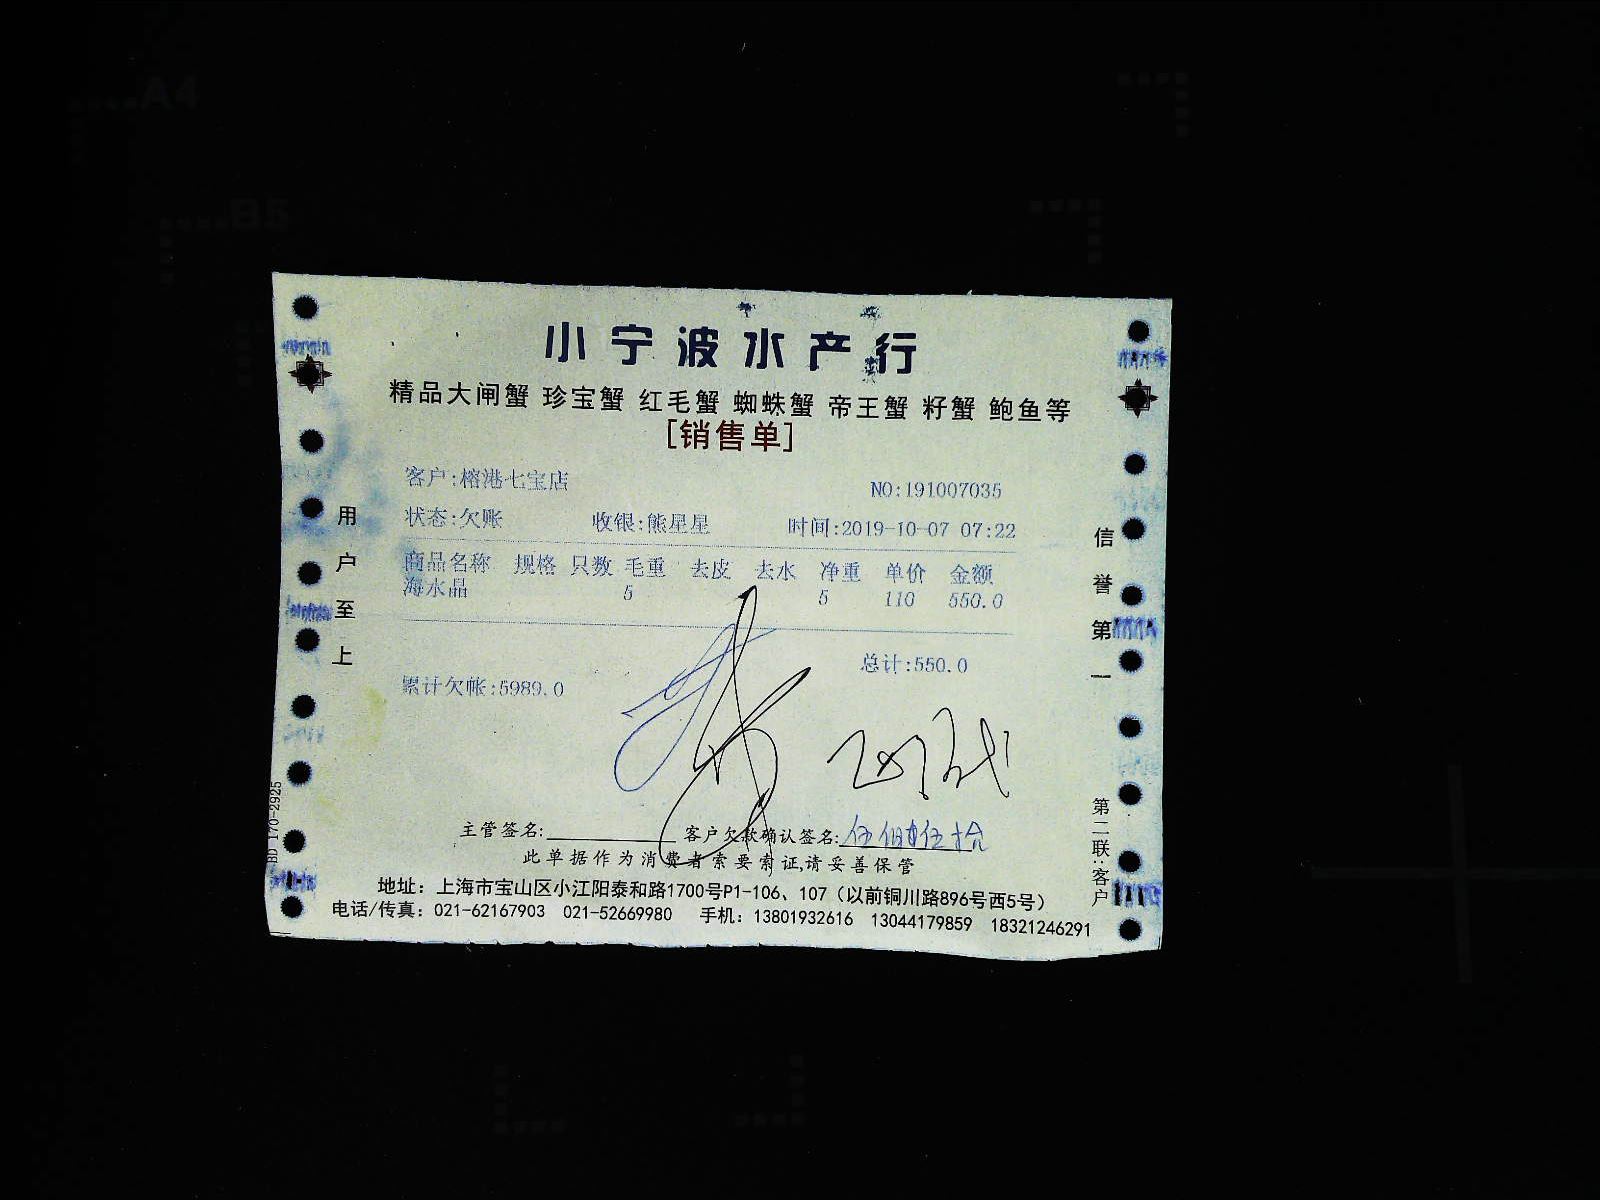 A4
B5
小宁波水产行
精品大闸蟹 珍宝蟹 红毛蟹 蜘蛛蟹 帝王蟹 籽蟹 鲍鱼等
[销售单]
客户:榕港七宝店 NO:191007035
状态:欠账 收银:熊星星 时间:2019-10-07 07:22
商品名称 规格 只数 毛重 去皮 去水 净重 单价 金额
海水晶 5 5 110 550.0
总计:550.0
累计欠帐:5989.0
主管签名: 客户欠款确认签名:伍佰伍拾
此单据作为消费者索要索证,请妥善保管
地址：上海市宝山区小江阳泰和路1700号P1-106、107（以前铜川路896号西5号）
电话/传真：021-62167903 021-52669980 手机：13801932616 13044179859 18321246291
用户至上
信誉第一
第二联:客户
BD 170-2925